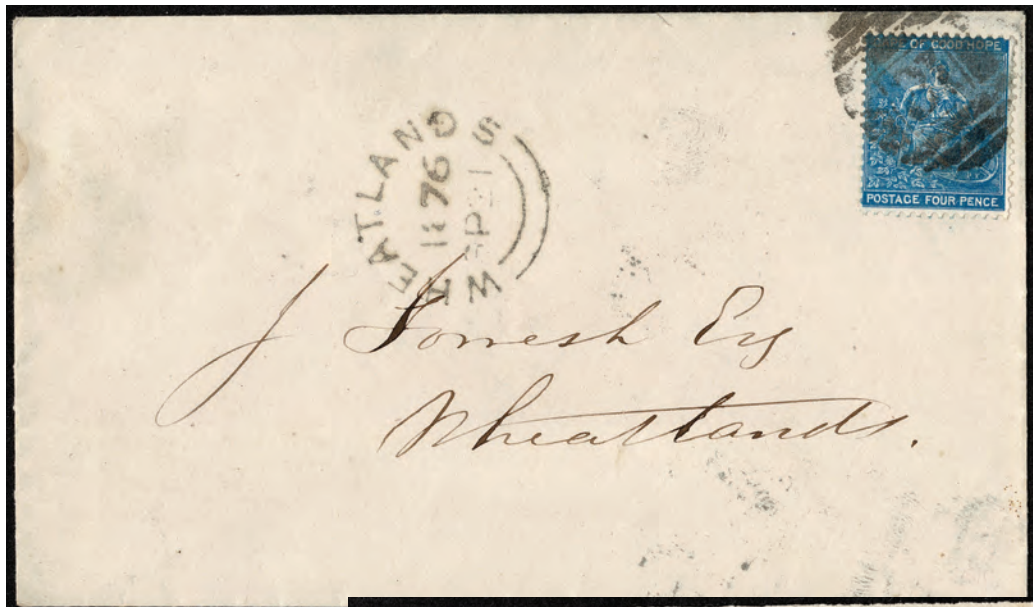 CAPE OF GOOD HOPE
POSTAGE FOUR PENCE
WHEATLANDS
1876
AP 21
J Forrest Esq
Wheatlands.